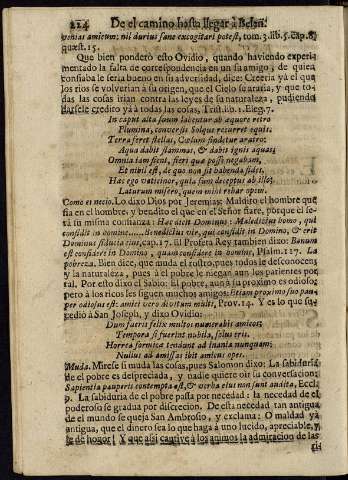 224 De el camino hasta llegar à Belen.
venias amicum; nil durius sane excogitari potest, tom. 3. lib. 5. cap. 8.
quæst. 15.
Que bien pondero esto Ovidio, quando haviendo experi-
mentado la falta de correspondencia en un su amigo; de quien
confiaba le seria bueno en su adversidad, dice: Creerìa yà el que
los rios se volverian a su origen, que el Cielo se araria, y que to-
das las cosas irian contra las leyes de su naturaleza, pudiendo
darsele credito yà à todas las cosas, Trist. lib. 1. Eleg. 7.
In caput alta suum labentur ab æquore retro
Flumina, conversis Solque recurret equis.
Terra feret stellas, Cœlum findetur aratro:
Aqua dabit flammas, & dabit ignis aquas;
Omnia iam fient, fieri quæ posse negabam,
Et nihil est, de quo non sit habenda fides.
Hæc ego vaticinor, quia sum deceptus ab illo:
Laturum misero, quem mihi rebar opem.
Como es necio. Lo dixo Dios por Jeremias: Maldito el hombre que
fia en el hombre; y bendito el que en el Señor fiare, porque el se-
rà su misma confianza: Hæc dicit Dominus: Maledictus homo, qui
confidit in homine...... Benedictus vir, qui confidit in Domino, & erit
Dominus fiducia eius, cap. 17. El Profeta Rey tambien dixo: Bonum
est confidere in Domino, quam confidere in homine, Psalm. 117. La
pobreza. Bien dice, que muda el rostro, pues todos le desconocen,
y la naturaleza, pues à el pobre le niegan aun los parientes por
tal. Por esto dixo el Sabio: El pobre, aun à su proximo es odioso;
pero à los ricos les siguen muchos amigos: Etiam proximo suo pau-
per odiosus est: amici vero divitum multi, Prov. 14. Y es lo que su-
cediò à San Joseph, y dixo Ovidio:
Dum fueris felix multos numerabis amicos;
Tempora si fuerint nubila, solus eris.
Horrea formicæ tendunt ad inania nunquam;
Nullus ad amissas ibit amicus opes.
Muda. Mirese si muda las cosas, pues Salomon dixo: La sabiduria
de el pobre es despreciada, y nadie quiere oir su conversacion:
Sapientia pauperis contempta est, & verba eius non sunt audita, Eccl.
9. La sabiduria de el pobre passa por necedad: la necedad de el
poderoso se gradua por discrecion. De esta necedad tan antigua
de el mundo se queja San Ambrosio, y exclama: O maldad yà
antigua, que el dinero sea lo que haga à uno lucido, apreciable, y
de honor! Y que assi cautive à los animos la admiracion de las